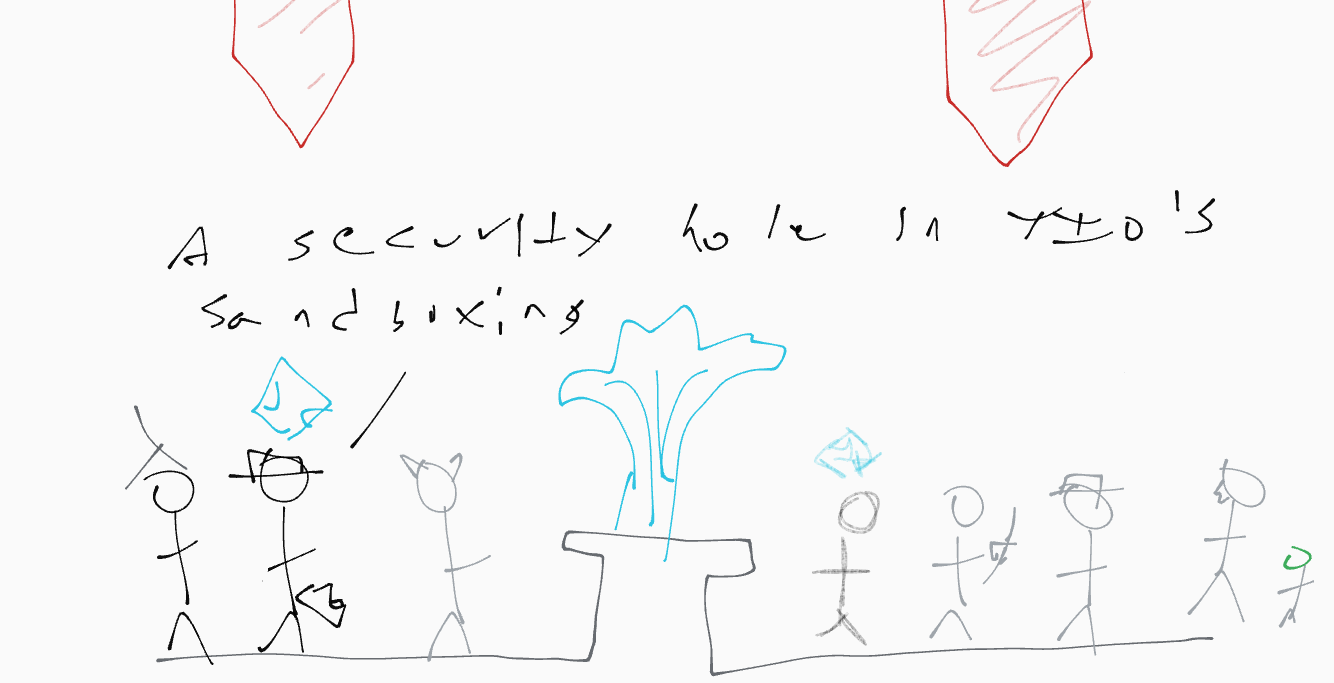 A security hole in YIO's
sandboxing
JS